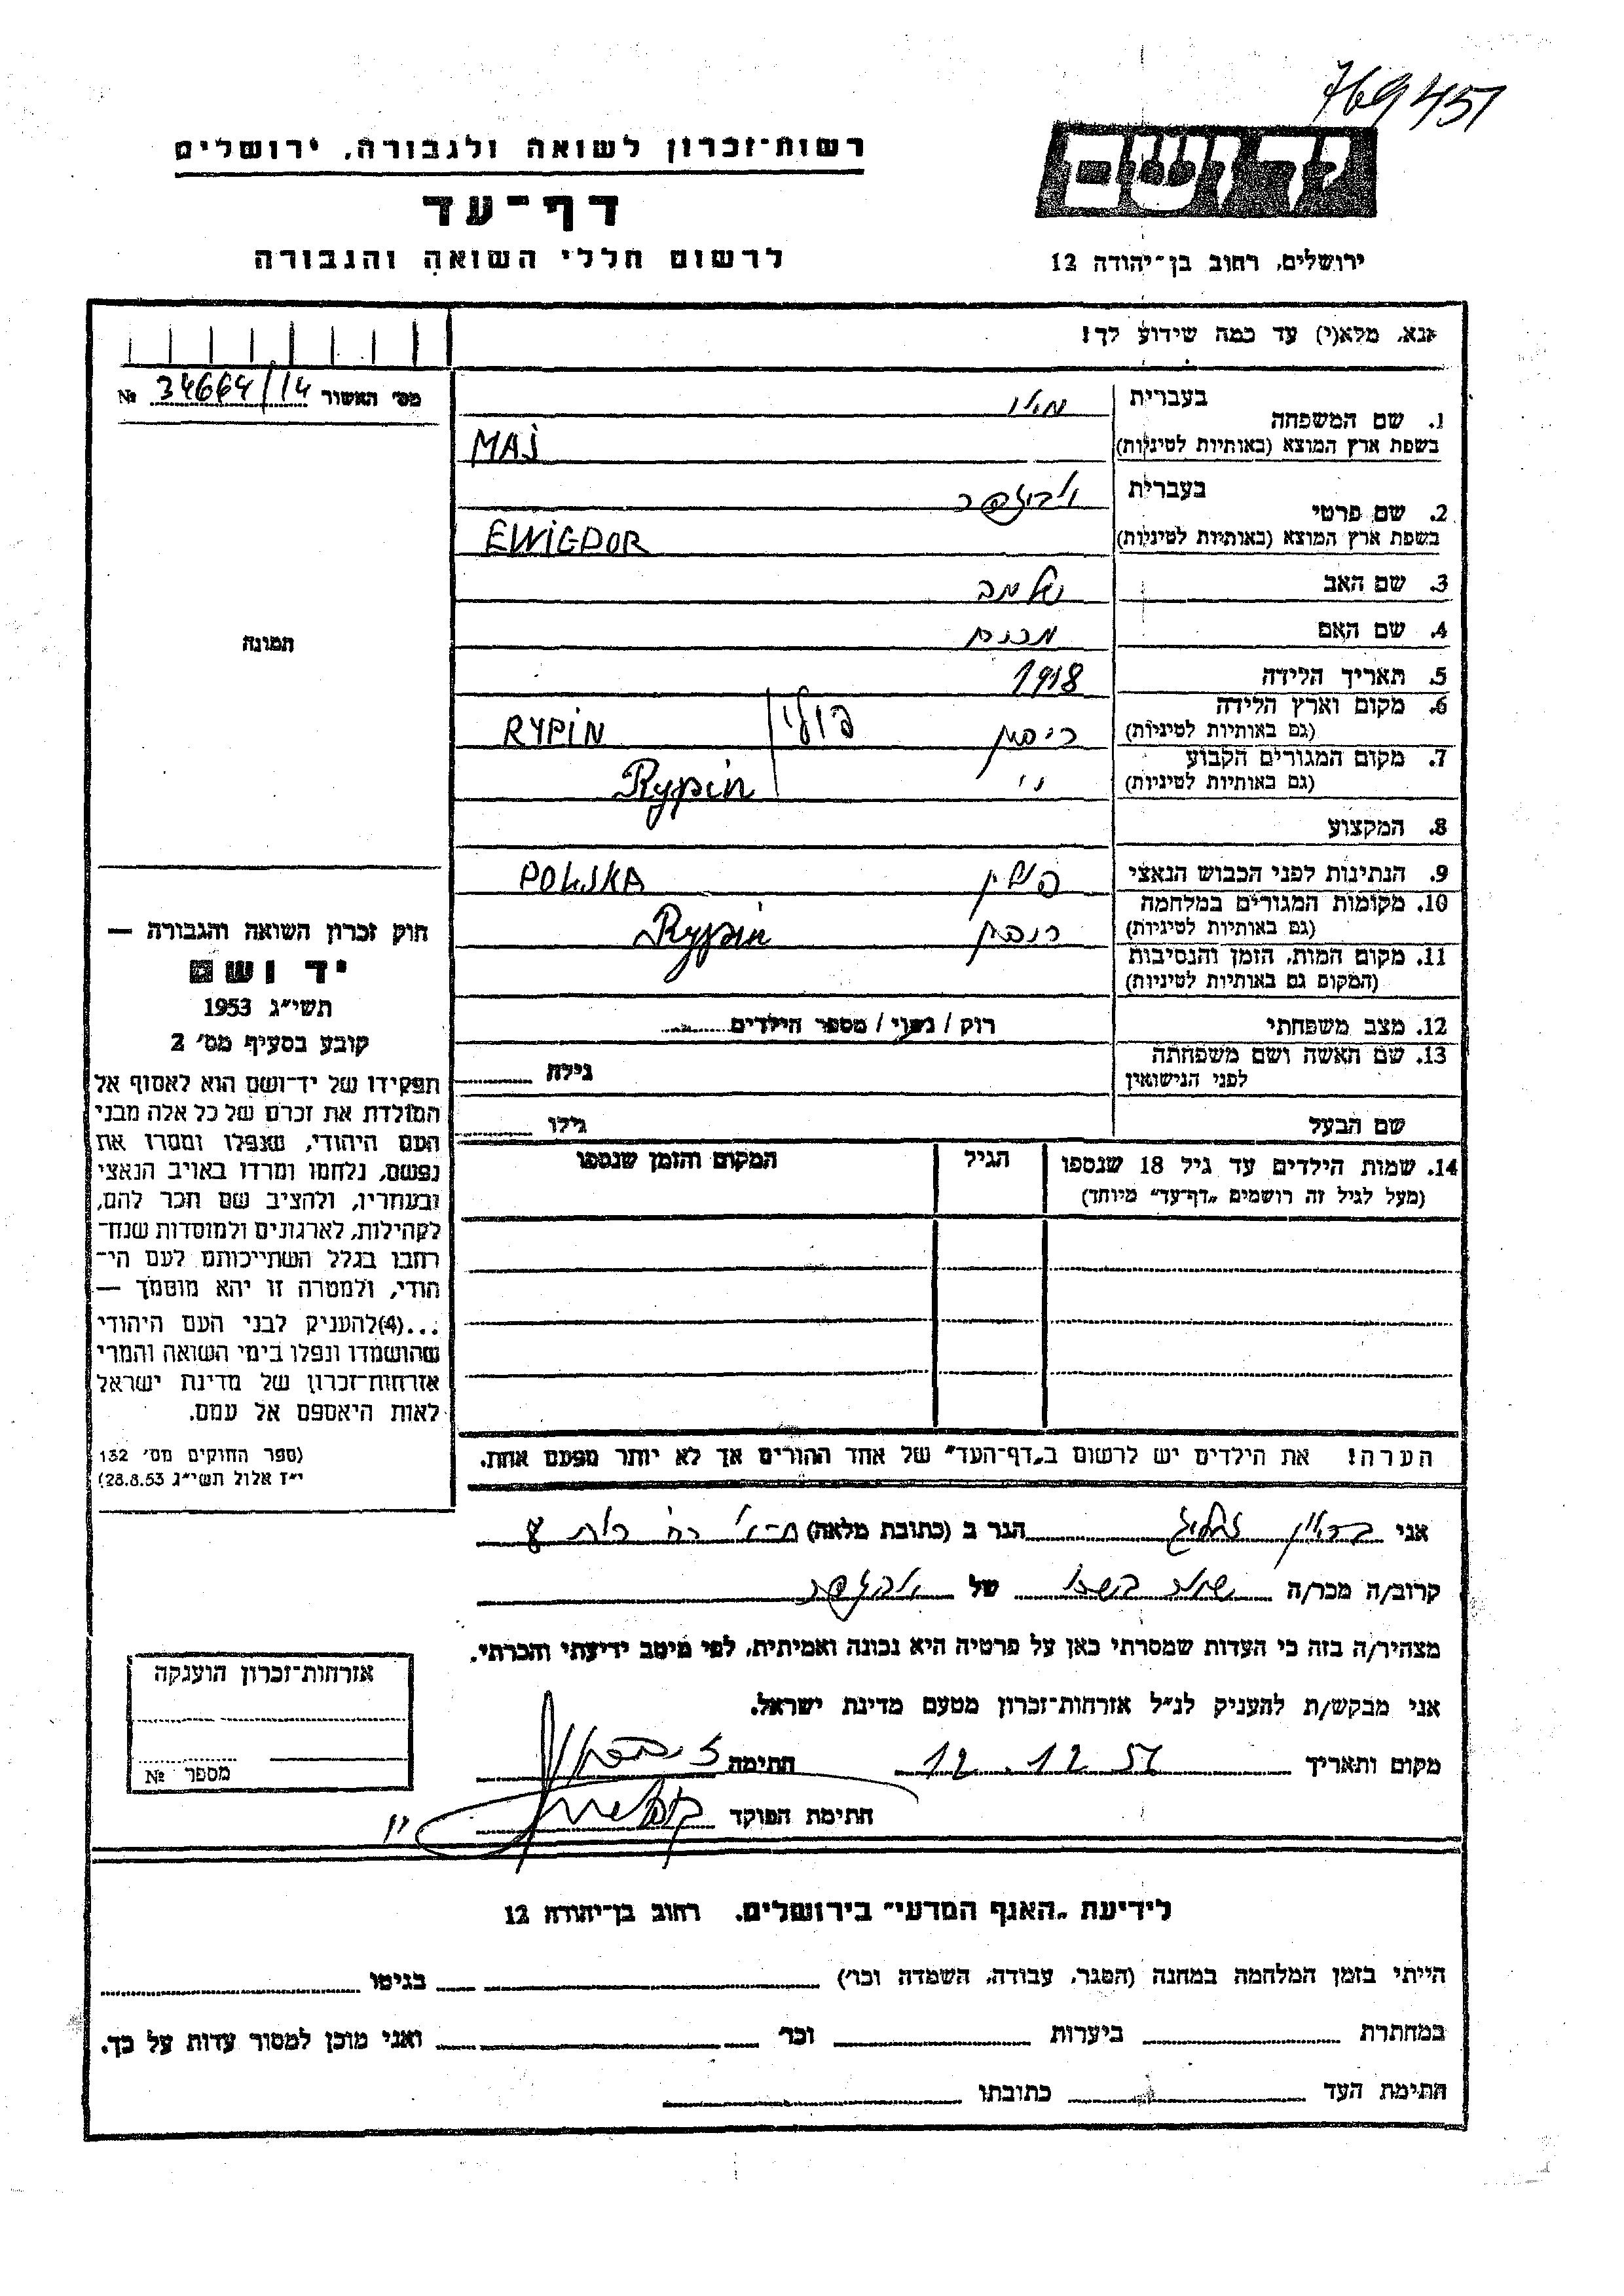 769451
רשות־זכרון לשואה ולגבורה, ירושלים
דף־עד
לרשום חללי השואה והגבורה
יד ושם
ירושלים, רחוב בן־יהודה 12
אנא, מלא(י) עד כמה שידוע לך!
מס׳ האשור 34664/14 №
1. שם המשפחה
בעברית
בשפת ארץ המוצא (באותיות לטיניות) MAJ
2. שם פרטי
בעברית אביגדור
בשפת ארץ המוצא (באותיות לטיניות) EWIGDOR
3. שם האב שלמה
4. שם האם
5. תאריך הלידה 1918
6. מקום וארץ הלידה
(גם באותיות לטיניות) ריפין פולין RYPIN
7. מקום המגורים הקבוע
(גם באותיות לטיניות) Rypin
8. המקצוע
9. הנתינות לפני הכבוש הנאצי פולין POLSKA
10. מקומות המגורים במלחמה
(גם באותיות לטיניות) ריפין Rypin
11. מקום המות, הזמן והנסיבות
(המקום גם באותיות לטיניות)
12. מצב משפחתי רוק / נשוי / מספר הילדים
13. שם האשה ושם משפחתה
לפני הנישואין גילה
שם הבעל גילו
14. שמות הילדים עד גיל 18 שנספו
(מעל לגיל זה רושמים „דף־עד״ מיוחד)
הגיל
המקום והזמן שנספו
הערה! את הילדים יש לרשום ב„דף־העד״ של אחד ההורים אך לא יותר מפעם אחת.
תמונה
חוק זכרון השואה והגבורה —
יד ושם
תשי״ג 1953
קובע בסעיף מס׳ 2
תפקידו של יד־ושם הוא לאסוף אל
המולדת את זכרם של כל אלה מבני
העם היהודי, שנפלו ומסרו את
נפשם, נלחמו ומרדו באויב הנאצי
ובעוזריו, ולהציב שם וזכר להם,
לקהילות, לארגונים ולמוסדות שנח־
רחבו בגלל השתייכותם לעם הי־
הודי, ולמטרה זו יהא מוסמך —
...(4)להעניק לבני העם היהודי
שהושמדו ונפלו בימי השואה והמרי
אזרחות־זכרון של מדינת ישראל
לאות היאספם אל עמם.
(ספר החוקים מס׳ 132
י״ז אלול תשי״ג 28.8.53)
אני הגר ב (כתובת מלאה)
קרוב/ה מכר/ה של אביגדור
מצהיר/ה בזה כי העדות שמסרתי כאן על פרטיה היא נכונה ואמיתית, לפי מיטב ידיעתי והכרתי.
אני מבקש/ת להעניק לנ״ל אזרחות־זכרון מטעם מדינת ישראל.
מקום ותאריך 12.12.56 חתימה
חתימת הפוקד
אזרחות־זכרון הוענקה
מספר №
לידיעת „האגף המדעי״ בירושלים, רחוב בן־יהודה 12
הייתי בזמן המלחמה במחנה (הסגר, עבודה, השמדה וכו׳) בגיטו
במחתרת ביערות וכו׳ ואני מוכן למסור עדות על כך.
חתימת העד כתובתו